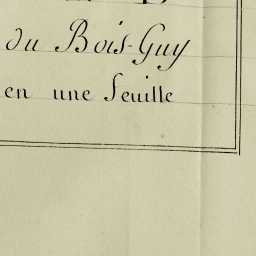 du Bois-Guy
en une feuille